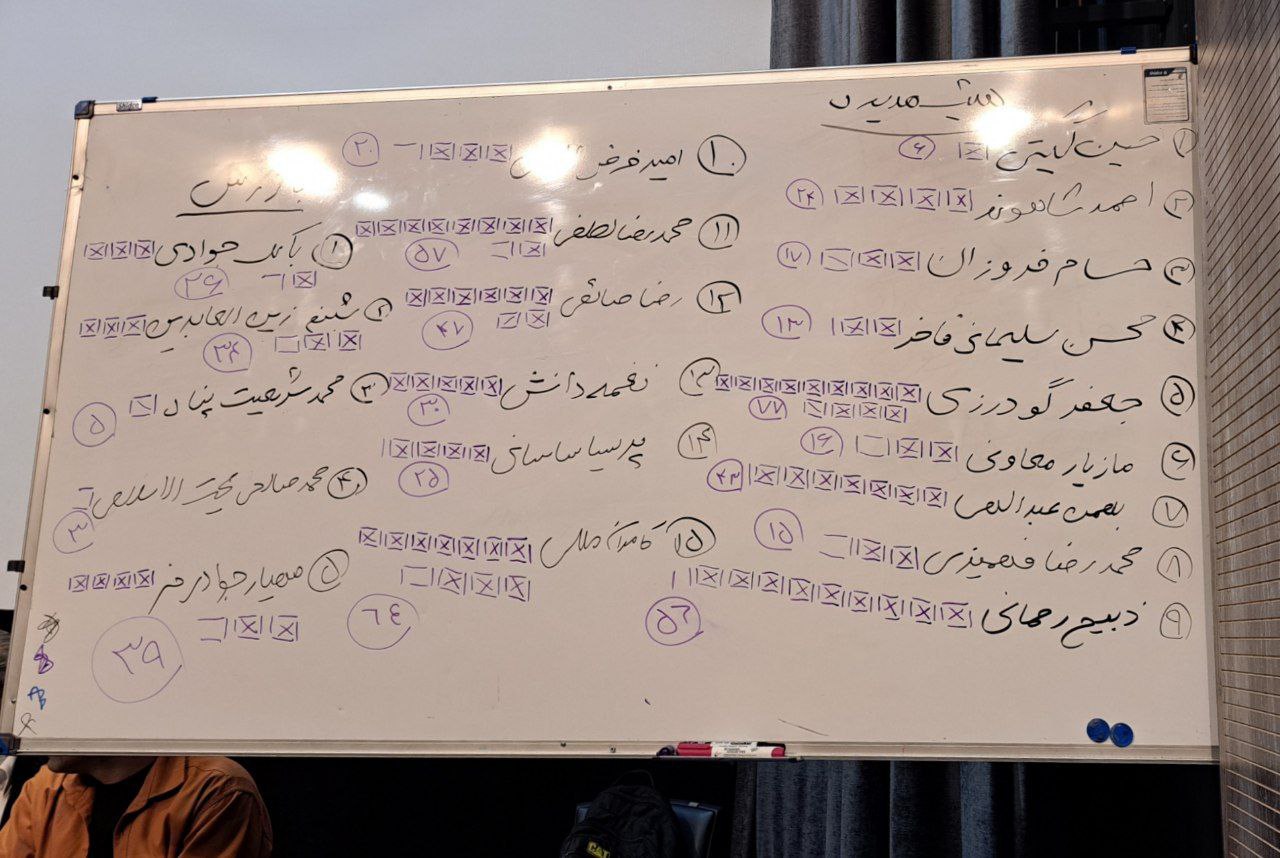 هیئت مدیره
۱ حسین گیتی ۶
۲ احمد شاهوند ۲۴
۳ حسام فروزان ۱۷
۴ محسن سلیمانی فاخر ۱۳
۵ جعفر گودرزی ۷۷
۶ مازیار معاونی ۱۶
۷ بهمن عبداللهی ۴۳
۸ محمدرضا فهمیزی ۱۵
۹ ذبیح رحمانی ۵۶
۱۰ امید فرض ۲۰
۱۱ محمدرضا لطفی ۵۷
۱۲ رضا صائمی ۴۷
۱۳ نغمه دانش ۳۰
۱۴ پرسیا ساسانی ۲۵
۱۵ ۶۴
بازرس
۱ بابک جوادی ۲۶
۲ شبنم زین العابدین ۳۴
۳ محمد شریعت پناه ۵
۴ محمد صالحی حجت الاسلامی ۳
۵ مهیار جوادی فر ۳۹